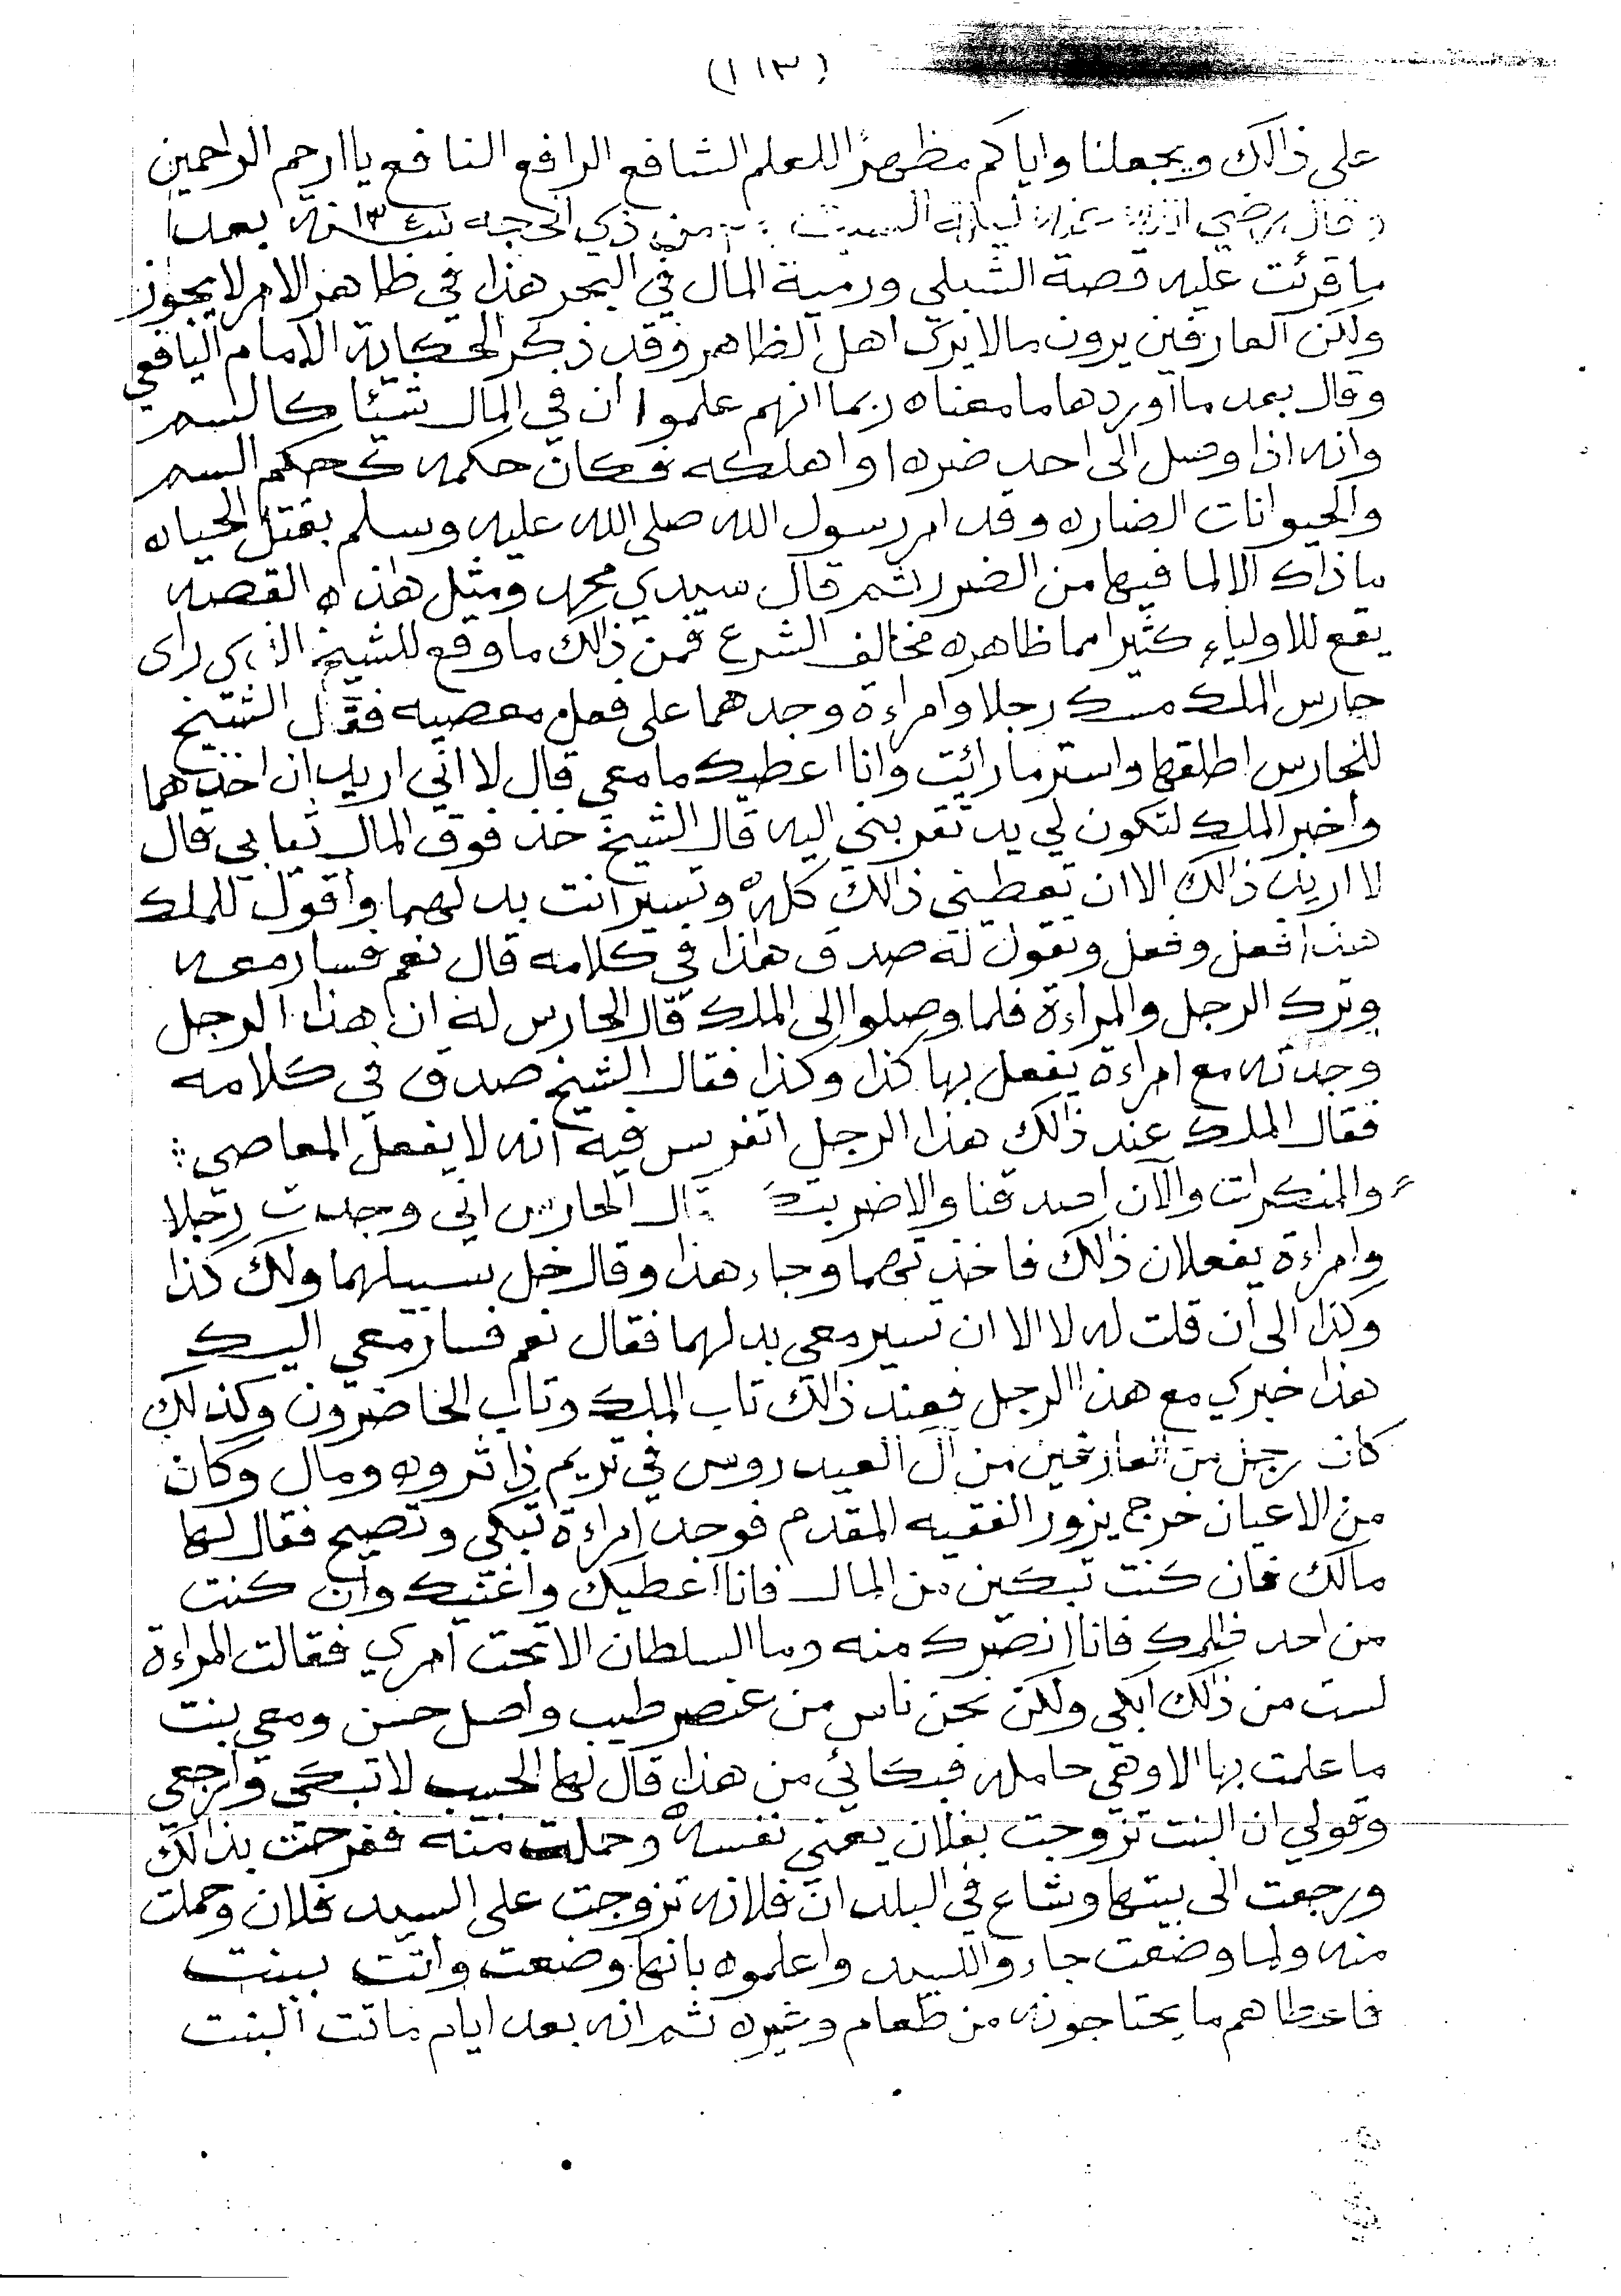 (١١٣)
على ذالك ويجعلنا واياكم مظهرًا للعلم الشافع الرافع النافع يا ارحم الراحمين
وقال رضي ليلة السبت من ذي الحجه بعد
ما قرئت عليه قصة الشبلي ورمية المال في البحر هذا في ظاهر الامر لا يجوز
ولكن العارفين يرون مالا يرى اهل الظاهر وقد ذكر الحكاية الامام اليافعي
وقال بعد ما اوردها ما معناه ربما انهم علموا ان في المال شيئا كالسم
وانه اذا وصل الى احد ضره او اهلكه فكان حكمه كحكم السم
والحيوانات الضاره وقد امر رسول الله صلى الله عليه وسلم بقتل الحياه
ما ذاك الا لما فيها من الضرر ثم قال سيدي محمد ومثل هذه القصه
يقع للاولياء كثيرا مما ظاهره مخالف الشرع فمن ذالك ما وقع للشيخ الذي راى
حارس الملك مسك رجلا وامراءة وجدهما على فعل معصيه فقال الشيخ
للحارس اطلقهما واستر ما رائت وانا اعطيك ما معي قال لا اني اريد ان اخذهما
واخبر الملك لتكون لي يد تقربني اليه قال الشيخ خذ فوق المال ثيابي قال
لا اريد ذالك الا ان تعطيني ذالك كله وتسير انت بدلهما واقول للملك
هذا فعل وفعل وتقول له صدق هذا في كلامه قال نعم فسار معه
وترك الرجل والمراءة فلما وصلوا الى الملك قال الحارس له ان هذا الرجل
وجدته مع امراءة يفعل بها كذا وكذا فقال الشيخ صدق في كلامه
فقال الملك عند ذالك هذا الرجل اتفرس فيه انه لا يفعل المعاصي
والمنكرات والآن اصدقنا والا ضربتك قال الحارس اني وجدت رجلا
وامراءة يفعلان ذالك فاخذتهما وجاء هذا وقال خل سبيلهما ولك كذا
وكذا الى ان قلت له لا الا ان تسير معي بدلهما فقال نعم فسار معي اليك
هذا خبري مع هذا الرجل فعند ذالك تاب الملك وتاب الحاضرون وكذلك
كان رجل من العارفين من آل العيدروس في تريم ذا ثروه ومال وكان
من الاعيان خرج يزور الفقيه المقدم فوجد امراءة تبكي وتصيح فقال لها
مالك فان كنت تبكين من المال فانا اعطيك واغنيك وان كنت
من احد ظلمك فانا انصرك منه وما السلطان الا تحت امري فقالت المراءة
لست من ذالك ابكي ولكن نحن ناس من عنصر طيب واصل حسن ومعي بنت
ما علمت بها الا وهي حامله فبكائي من هذا قال لها الحبيب لا تبكي وارجعي
وقولي ان البنت تزوجت بفلان يعني نفسه وحملت منه ففرحت بذالك
ورجعت الى بيتها وشاع في البلد ان فلانه تزوجت على السيد فلان وحملت
منه ولما وضعت جاءوا للسيد واعلموه بانها وضعت واتت ببنت
فاعطاهم ما يحتاجونه من طعام وغيره ثم انه بعد ايام ماتت البنت